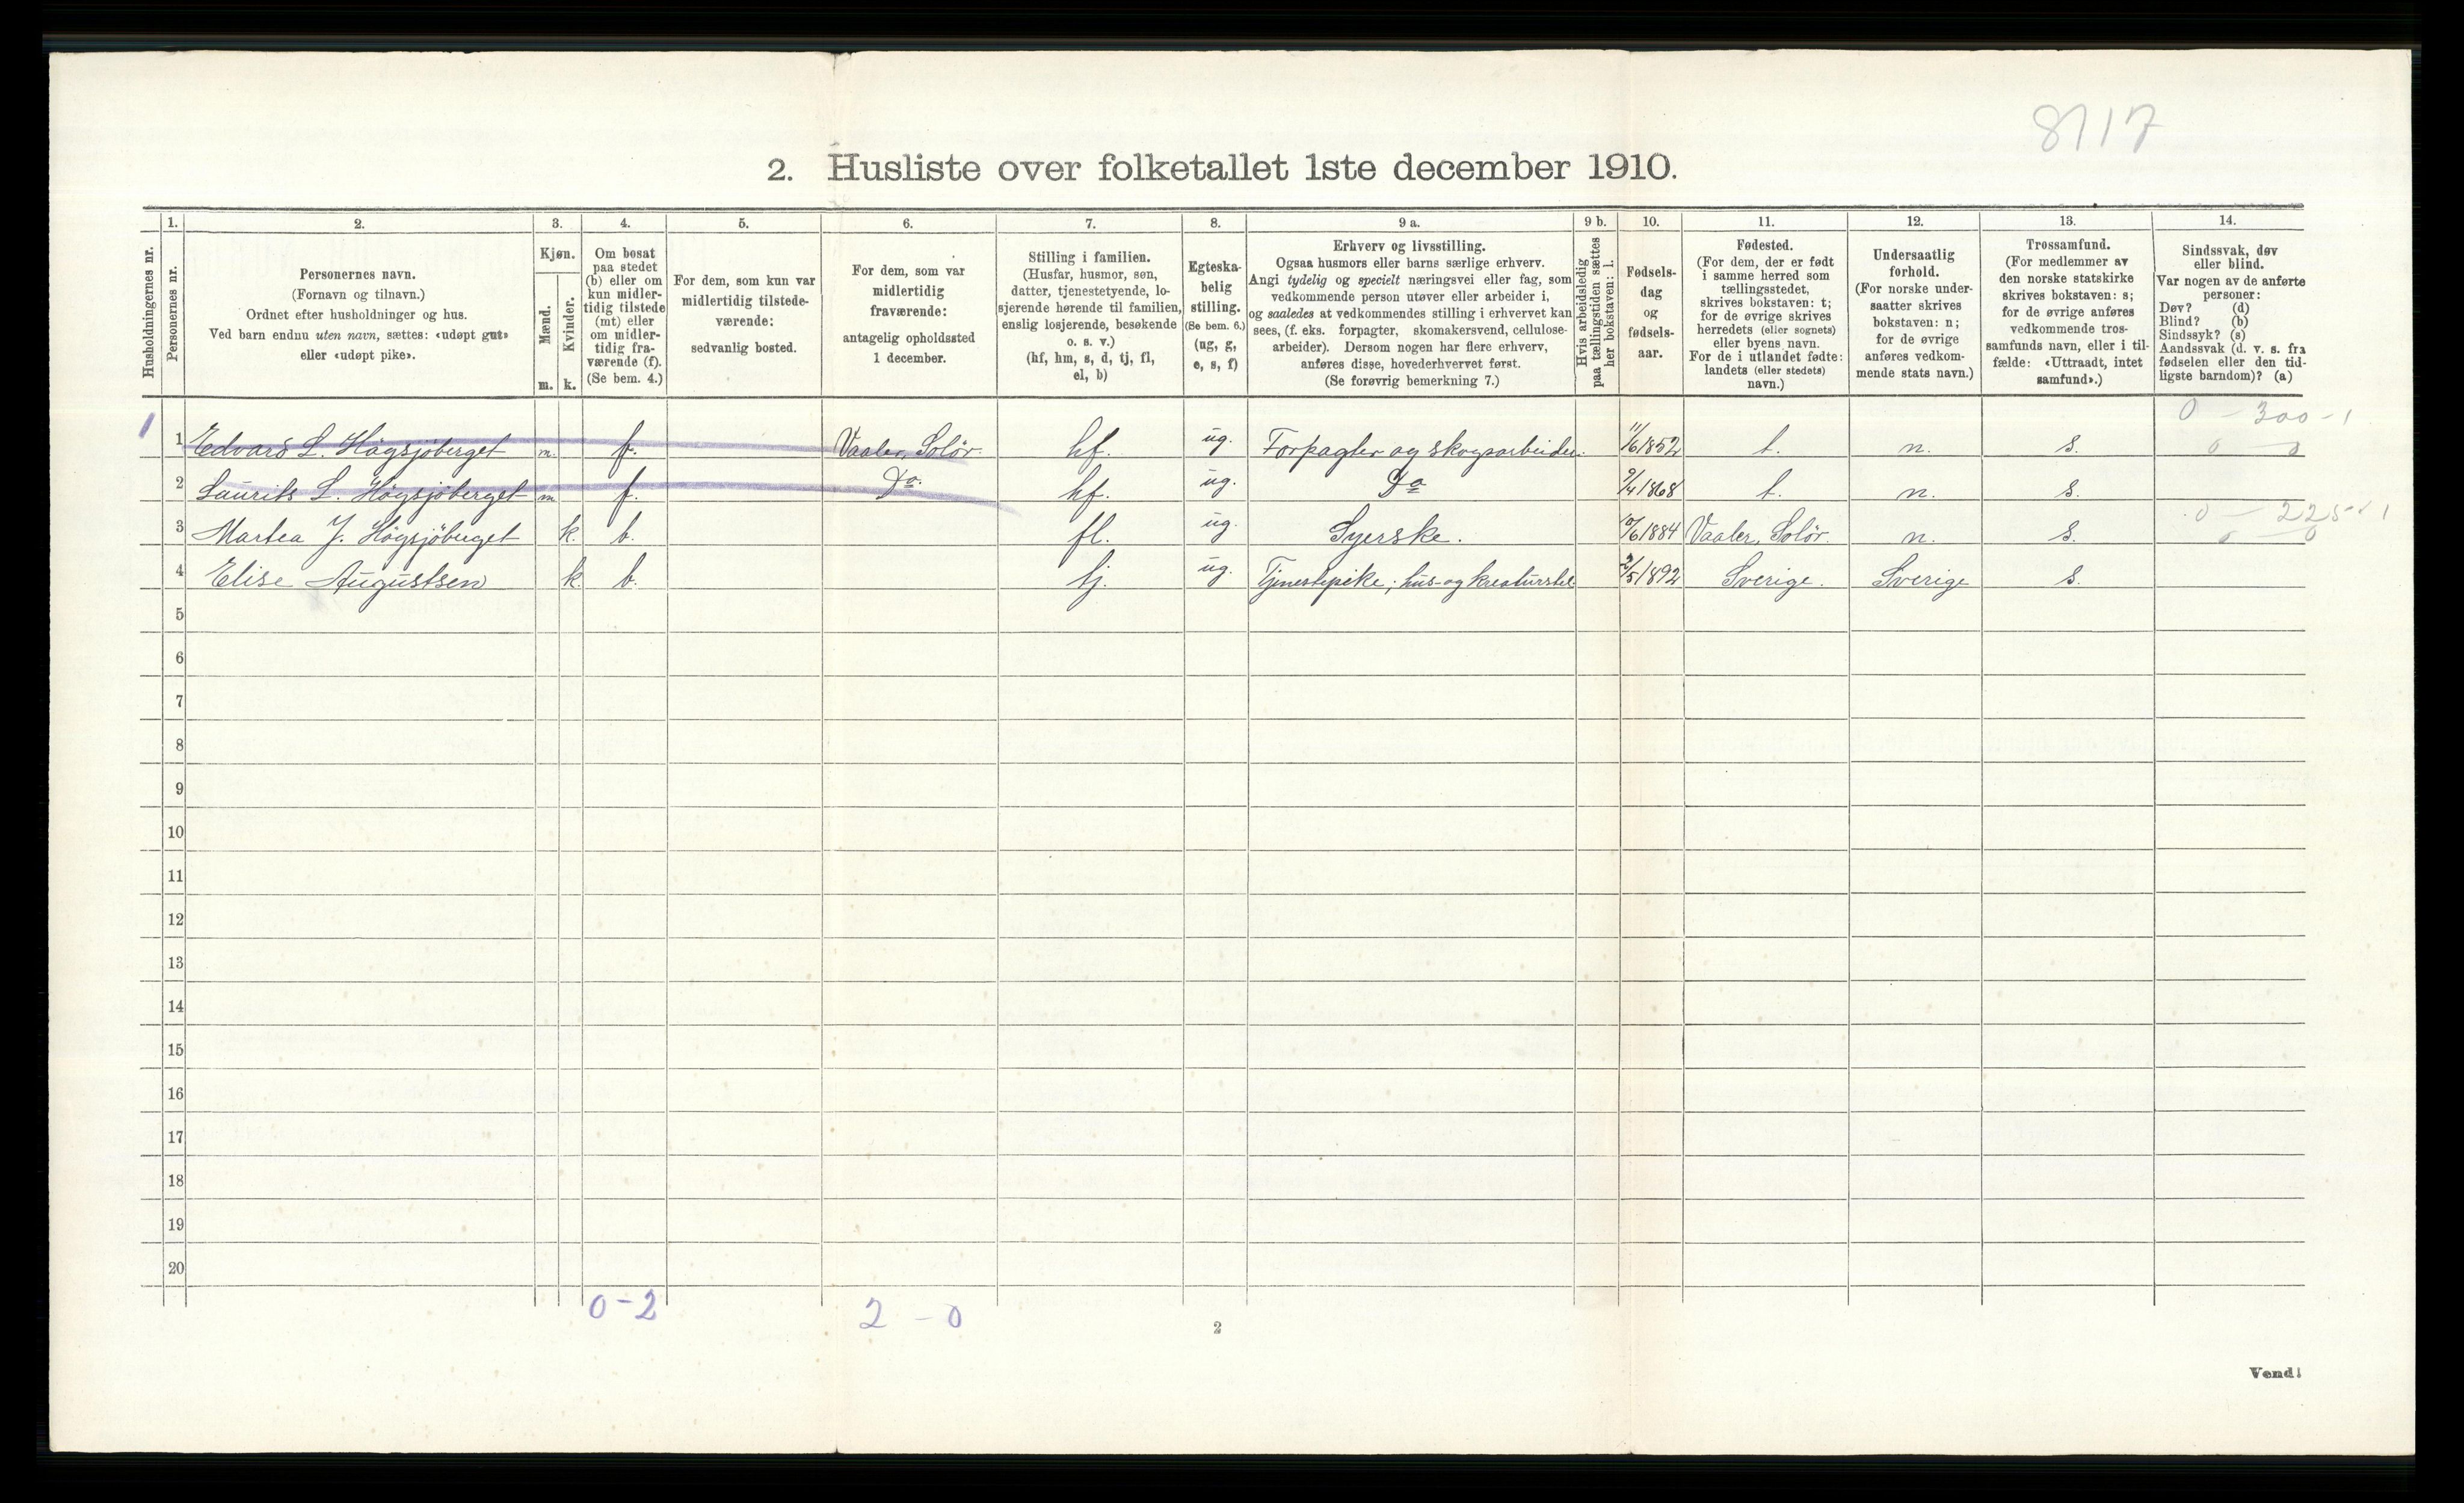 8717
2. Husliste over folketallet 1ste december 1910.
Husholdningernes nr.
1.
Personernes nr.
2.
Personernes navn.
(Fornavn og tilnavn.)
Ordnet efter husholdninger og hus.
Ved barn endnu uten navn, sættes: «udøpt gut»
eller «udøpt pike».
3.
Kjøn.
Mænd.
Kvinder.
m. k.
4.
Om bosat
paa stedet
(b) eller om
kun midler-
tidig tilstede
(mt) eller
om midler-
tidig fra-
værende (f).
(Se bem. 4.)
5.
For dem, som kun var
midlertidig tilstede-
værende:
sedvanlig bosted.
6.
For dem, som var
midlertidig
fraværende:
antagelig opholdssted
1 december.
7.
Stilling i familien.
(Husfar, husmor, søn,
datter, tjenestetyende, lo-
sjerende hørende til familien,
enslig losjerende, besøkende
o. s. v.)
(hf, hm, s, d, tj, fl,
el, b)
8.
Egteska-
belig
stilling.
(Se bem. 6.)
(ug, g,
e, s, f)
9 a.
Erhverv og livsstilling.
Ogsaa husmors eller barns særlige erhverv.
Angi tydelig og specielt næringsvei eller fag, som
vedkommende person utøver eller arbeider i,
og saaledes at vedkommendes stilling i erhvervet kan
sees, (f. eks. forpagter, skomakersvend, cellulose-
arbeider). Dersom nogen har flere erhverv,
anføres disse, hovederhvervet først.
(Se forøvrig bemerkning 7.)
9 b.
Hvis arbeidsledig
paa tællingstiden sættes
her bokstaven: l.
10.
Fødsels-
dag
og
fødsels-
aar.
11.
Fødested.
(For dem, der er født
i samme herred som
tællingsstedet,
skrives bokstaven: t;
for de øvrige skrives
herredets (eller sognets)
eller byens navn.
For de i utlandet fødte:
landets (eller stedets)
navn.)
12.
Undersaatlig
forhold.
(For norske under-
saatter skrives
bokstaven: n;
for de øvrige
anføres vedkom-
mende stats navn.)
13.
Trossamfund.
(For medlemmer av
den norske statskirke
skrives bokstaven: s;
for de øvrige anføres
vedkommende tros-
samfunds navn, eller i til-
fælde: «Uttraadt, intet
samfund».)
14.
Sindssvak, døv
eller blind.
Var nogen av de anførte
personer:
Døv? (d)
Blind? (b)
Sindssyk? (s)
Aandssvak (d. v. s. fra
fødselen eller den tid-
ligste barndom)? (a)
0 - 300 - 1
1 1 Edvard L. Högsjöberget m. f. Vaaler, Solör. hf. ug. Forpagter og skogsarbeider. 11/6 1852 t. n. s. 0 - 0
2 Laurits L. Högsjöberget m f. Do. hf. ug. Do 9/4 1868 t. n. s.
0 - 225 - 1
3 Martea J. Högsjöberget k. b. fl. ug. Syerske. 10/6 1884 Vaaler, Solör. n. s. 0 - 0
4 Elise Augustsen k. b. tj. ug. Tjenestepike; hus- og kreaturstel 2/5 1892 Sverige. Sverige s.
5
6
7
8
9
10
11
12
13
14
15
16
17
18
19
20
0 - 2 2 - 0
2
Vend!